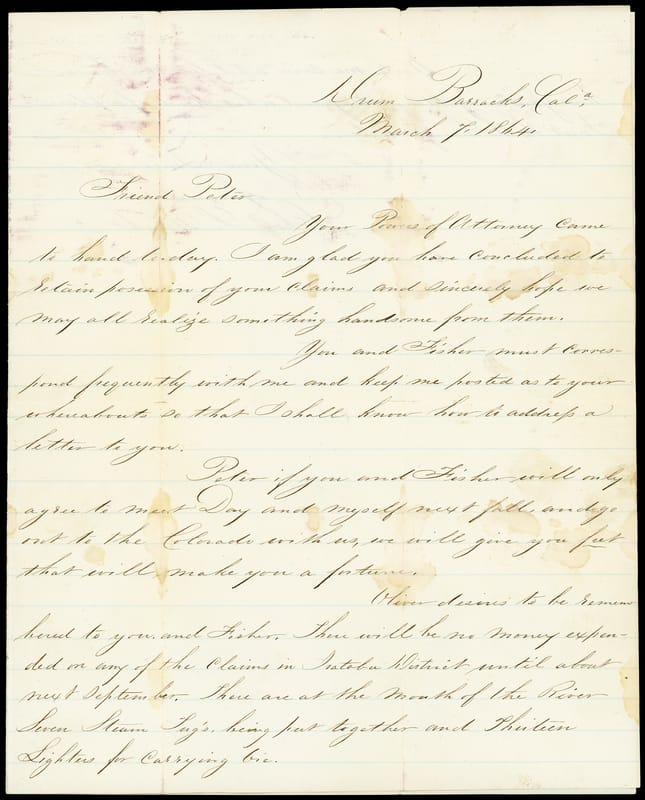 Drum Barracks, Cal.a
March 7. 1864.
Friend Peter
Your Power of Attorney came
to hand to-day. I am glad you have concluded to
retain possession of your claims and sincerely hope we
may all realize something handsome from them.
You and Fisher must corres-
pond frequently with me and keep me posted as to your
whereabouts so that I shall know how to address a
letter to you.
Peter if you and Fisher will only
agree to meet Day and myself next fall and go
out to the Colorado with us, we will give you feet
that will make you a fortune.
Oliver desires to be remem
bered to you and Fisher. There will be no money expen-
ded on any of the claims in District until about
next September. There are at the Mouth of the River
Seven Steam Tug's, being put together and Thirteen
Lighters for carrying